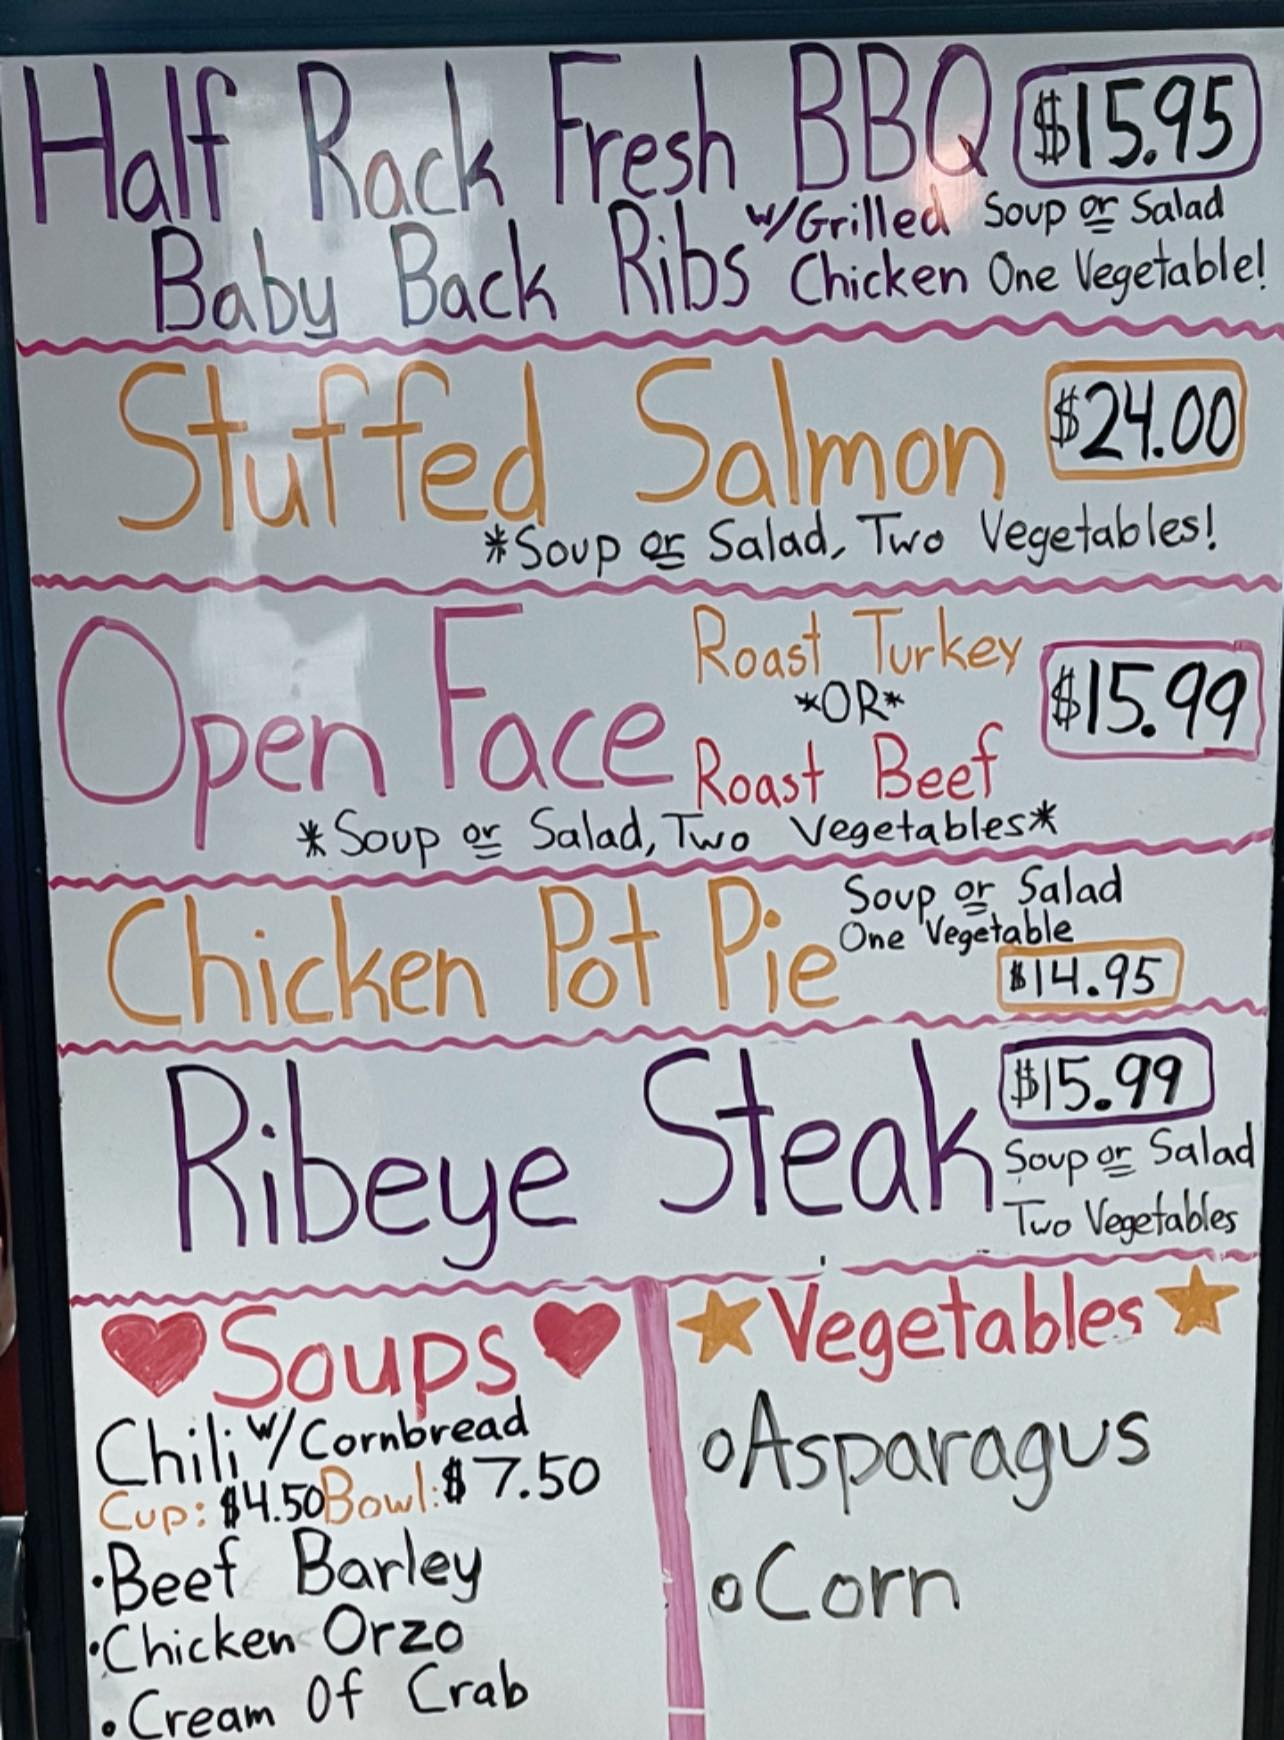 Half Rack Fresh BBQ $15.95
Baby Back Ribs w/Grilled Chicken
Soup or Salad
One Vegetable!
Stuffed Salmon $24.00
*Soup or Salad, Two Vegetables!
Open Face
Roast Turkey
*OR*
Roast Beef
$15.99
*Soup or Salad, Two Vegetables*
Chicken Pot Pie
Soup or Salad
One Vegetable
$14.95
Ribeye Steak
$15.99
Soup or Salad
Two Vegetables
Soups
Chili w/Cornbread
Cup: $4.50 Bowl: $7.50
·Beef Barley
·Chicken Orzo
·Cream Of Crab
Vegetables
oAsparagus
oCorn